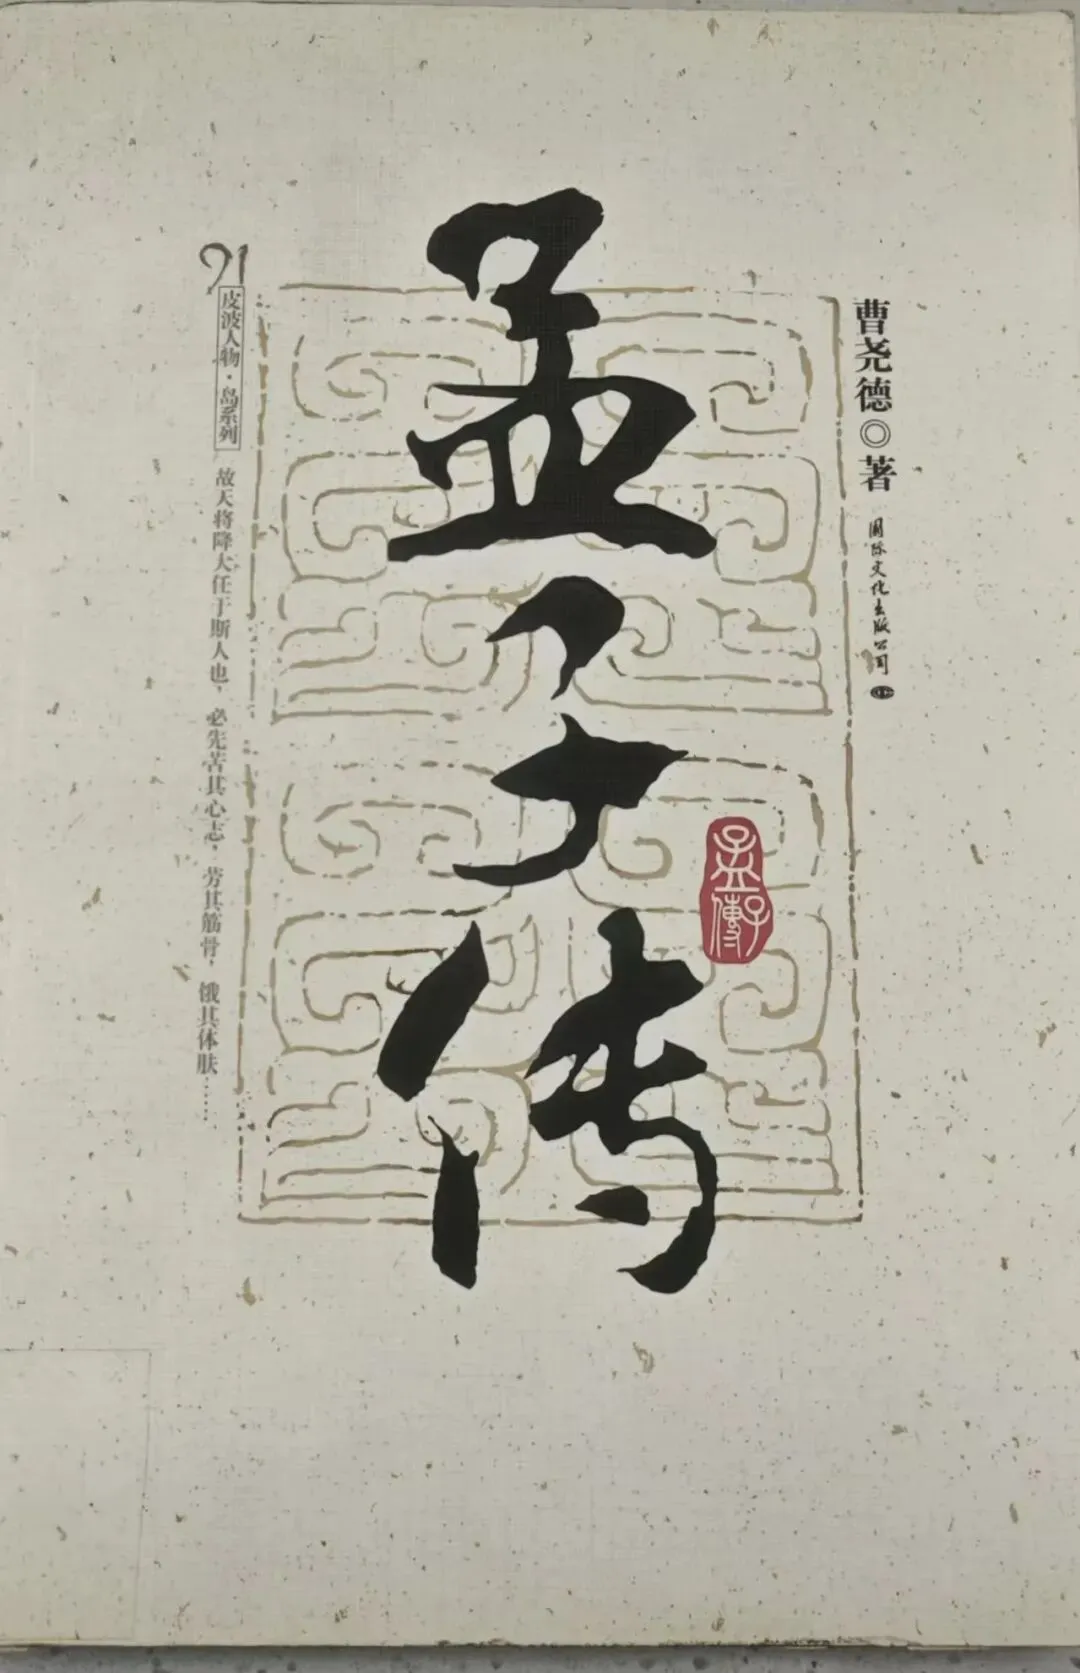 孟子传
曹尧德◎著
国际文化出版公司
孟子傳
皮波人物·岛系列
故天将降大任于斯人也，必先苦其心志，劳其筋骨，饿其体肤……